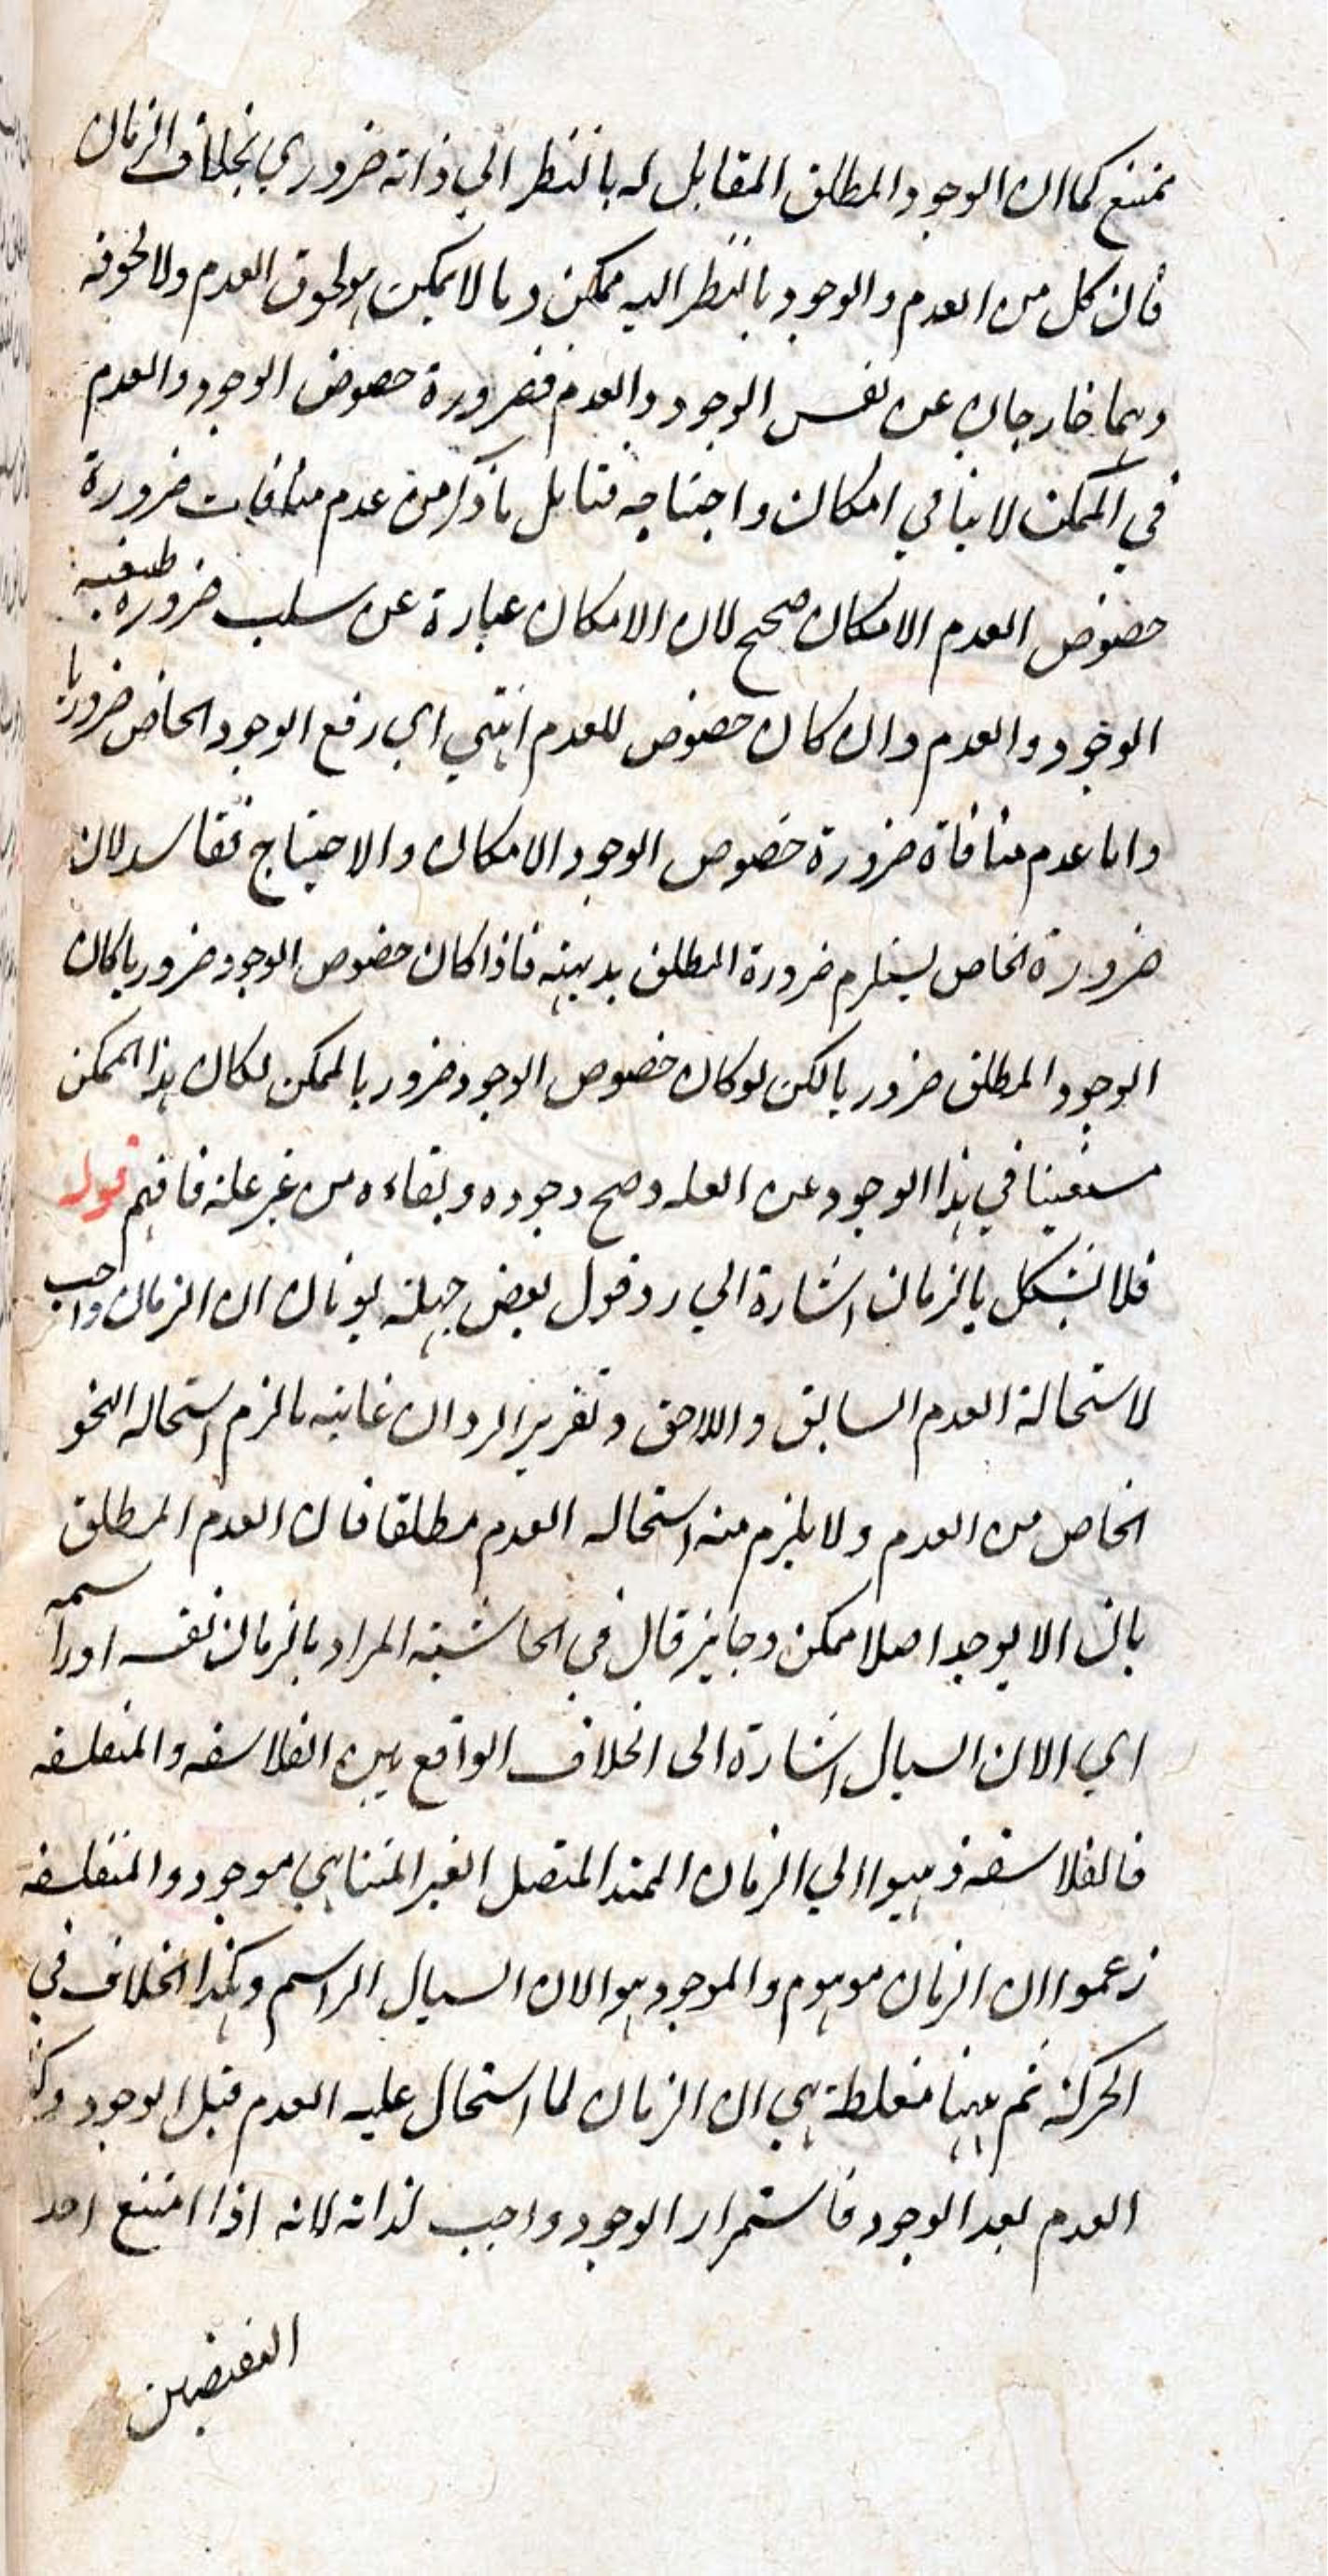 ممتنع كما ان الوجود المطلق المقابل له بالنظر الي ذاته ضروري بخلاف الزمان
فان كل من العدم والوجود بالنظر اليه ممكن وما لا يمكن هو لحوق العدم ولا لحوقه
وهما خارجان عن نفس الوجود والعدم فضرورة خصوص الوجود والعدم
في الممكن لا ينافي امكان واحتياجه فتامل ما ذكر من عدم منافات ضرورة
خصوص العدم الامكان صحيح لان الامكان عبارة عن سلب ضرورة طبيعة
الوجود والعدم وان كان خصوص للعدم انتهي اي رفع الوجود الخاص ضروريا
واما عدم منافاة ضرورة خصوص الوجود الامكان والاحتياج ففاسد لان
ضرورة الخاص يستلزم ضرورة المطلق بديهة فاذا كان خصوص الوجود ضروريا كان
الوجود المطلق ضروريا لكن لو كان خصوص الوجود ضروريا لممكن لكان هذا الممكن
مستغنيا في هذا الوجود عن العله وصح وجوده وبقاءه من غير علة فافهم قوله
فلا نشكل بالزمان اشارة الي رد قول بعض جهلة يونان ان الزمان واجب
لاستحالة العدم السابق واللاحق وتقرير الرد ان غايته ما لزم استحاله النحو
الخاص من العدم ولا يلزم منه استحاله العدم مطلقا فان العدم المطلق
بان لا يوجد اصلا ممكن وجايز قال في الحاشية المراد بالزمان نفسه او راسمه
اي الان السيال اشارة الى الخلاف الواقع بين الفلاسفه والمتفلسفه
فالفلاسفة ذهبوا الي الزمان الممتد المتصل الغير المتناهي موجود والمتفلسفة
زعموا ان الزمان موهوم والموجود هو الان السيال الراسم وهكذا الخلاف في
الحركة ثم ههنا مغلطة هي ان الزمان لما استحال عليه العدم قبل الوجود وكذا
العدم بعد الوجود فاستمرار الوجود واجب لذاته لانه اذا امتنع احد
النقيضين